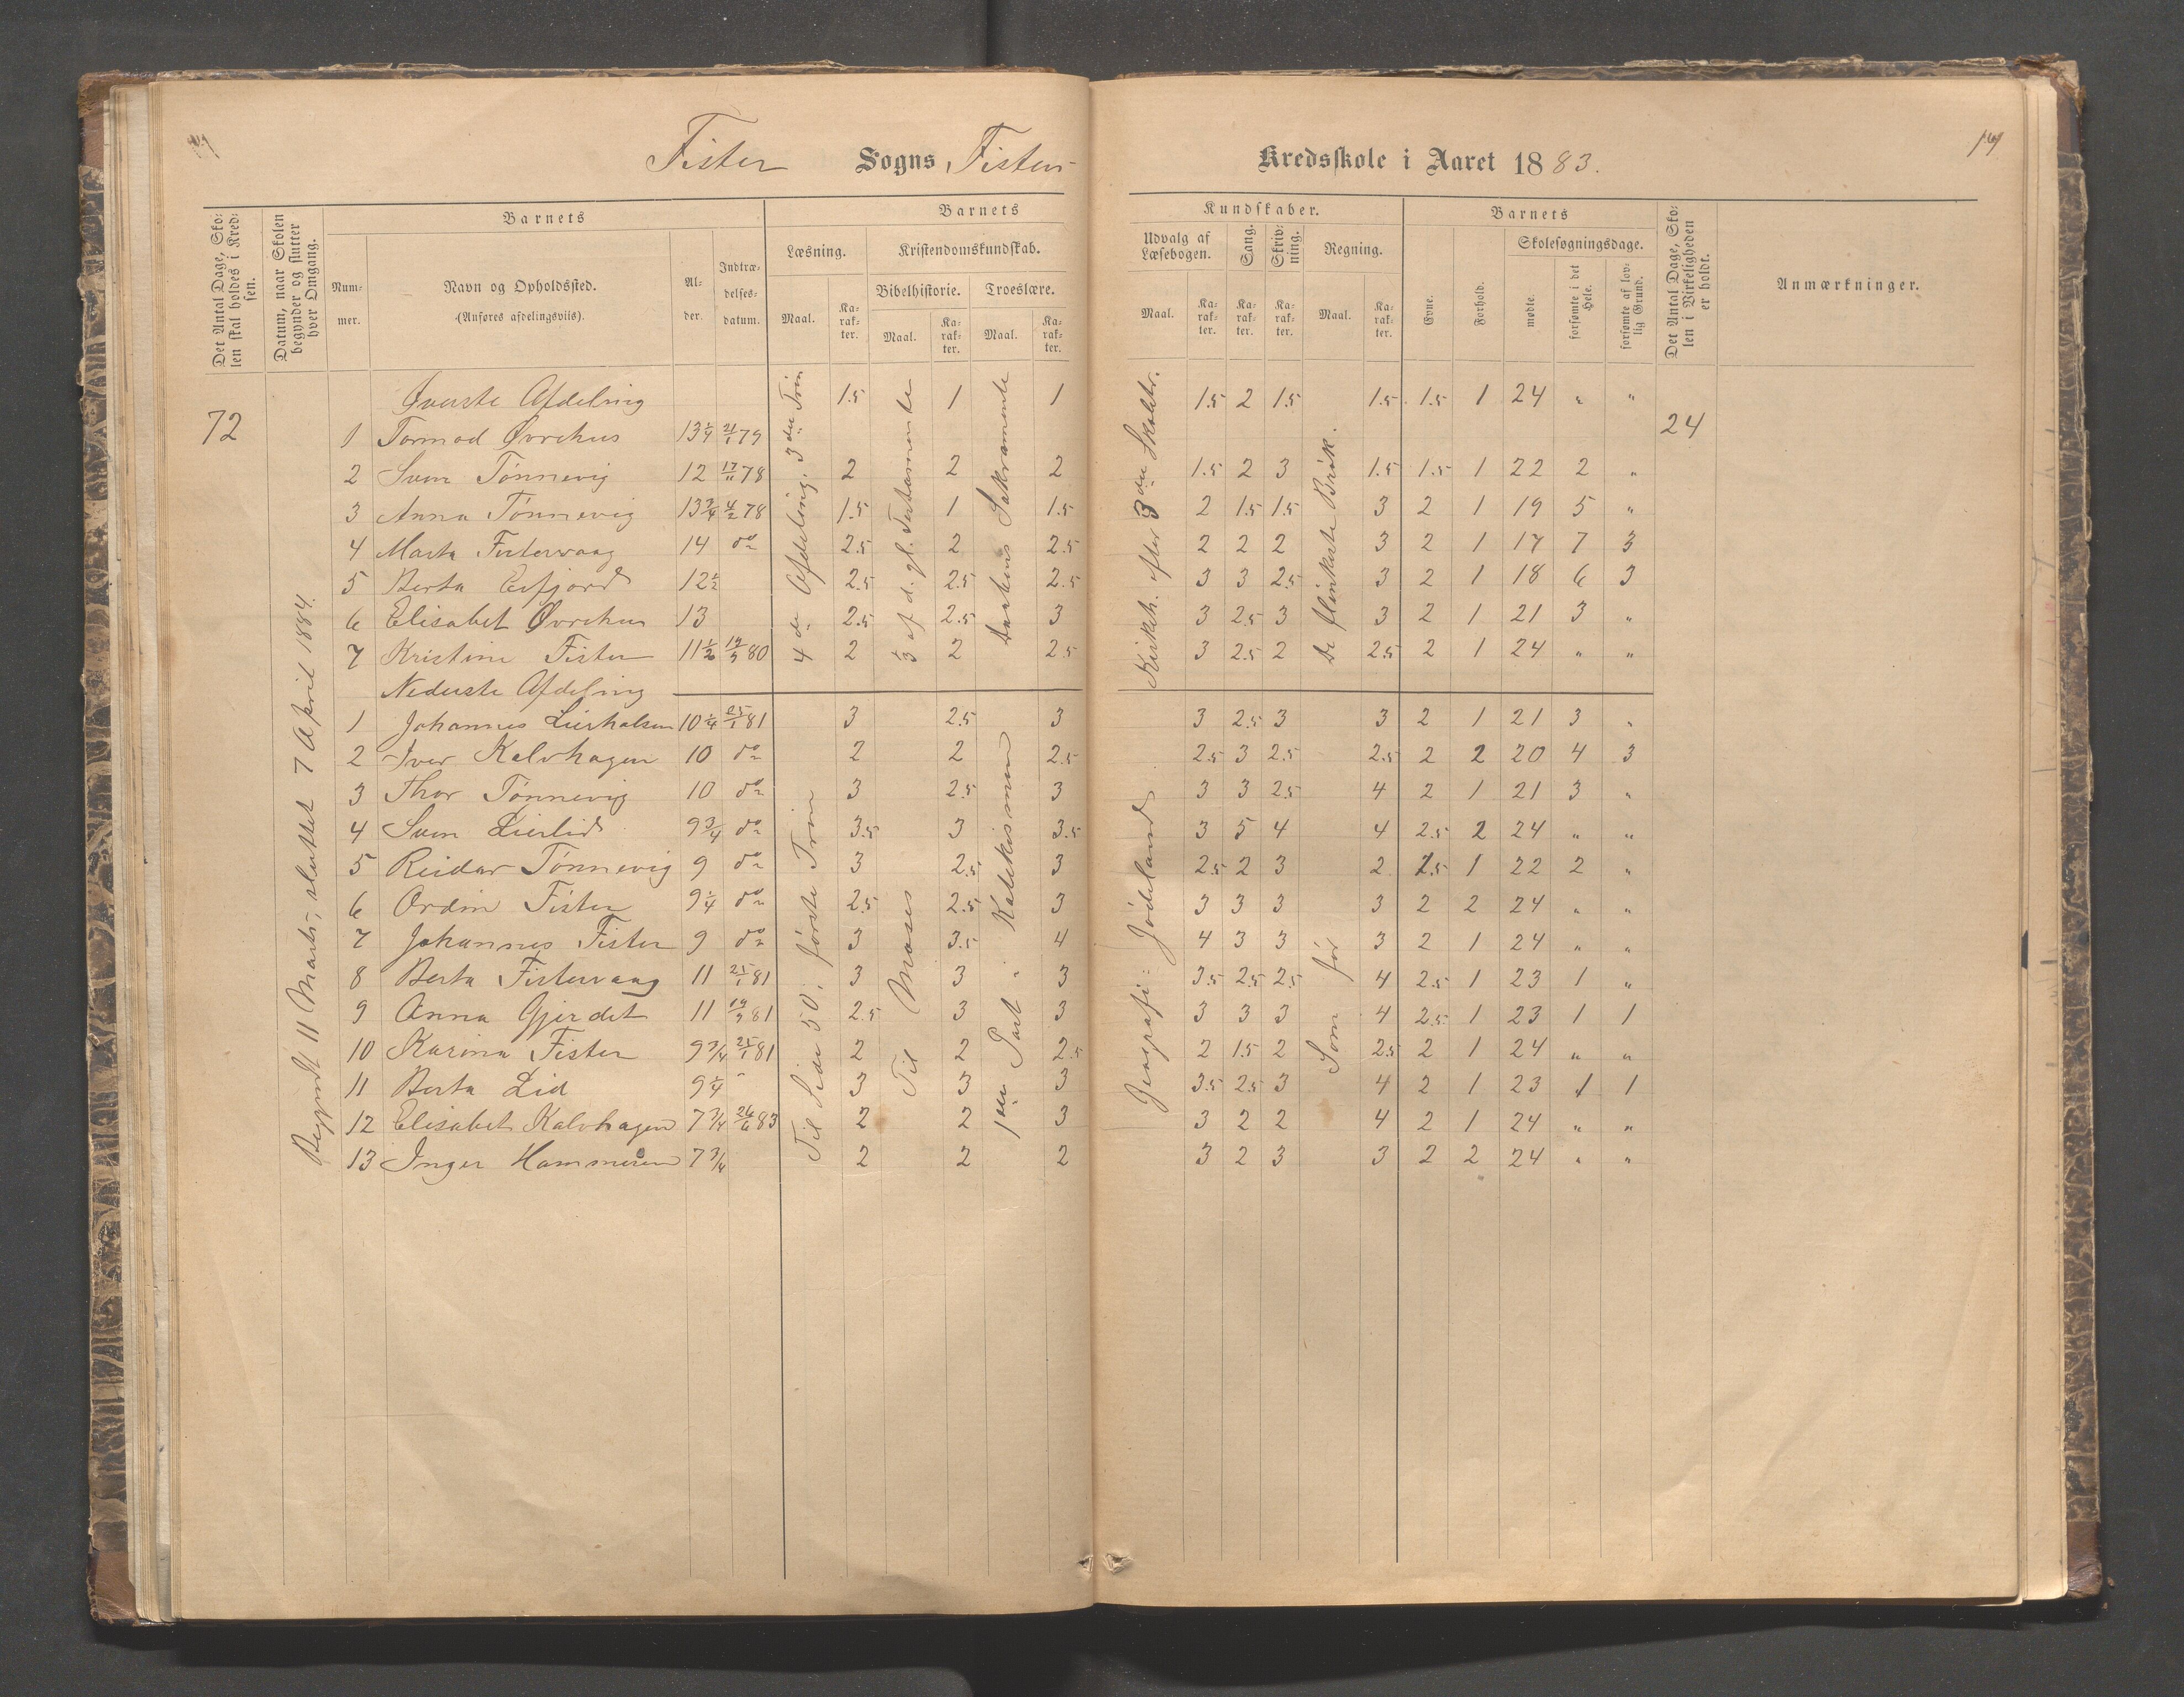 Fister Sogns Fister Kredsskole i Aaret 1883.
14
Det Antal Dage, Skolen skal holdes i Kredsen.
Datum, naar Skolen begynder og slutter hver Omgang.
Barnets
Nummer.
Navn og Opholdssted.
(Anføres afdelingsviis).
Alder.
Indtrædelsesdatum.
Barnets Kundskaber.
Læsning.
Maal.
Karakter.
Kristendomskundskab.
Bibelhistorie.
Maal.
Karakter.
Troeslære.
Maal.
Karakter.
Udvalg af Læsebogen.
Maal.
Karakter.
Sang.
Karakter.
Skrivning.
Karakter.
Regning.
Maal.
Karakter.
Barnets
Evne.
Forhold.
Skolesøgningsdage.
mødte.
forsømte i det Hele.
forsømte af lovlig Grund.
Det Antal Dage, Skolen i Virkeligheden er holdt.
Anmærkninger.
72
24
Begyndt 11 Marts, sluttet 7 April 1884.
4de Afdeling, 3die Trin
1/3 af d. gl. Testamente
Daabens Sakramente
Kirkeh. efter 3die Skoleår.
De flinkeste Brøk.
Øverste Afdeling
1 Tormod Øvrehus 13 1/4 21/1 79 1.5 1 1 1.5 2 1.5 1.5 1.5 1 24 " "
2 Sven Tønnevig 12 17/11 78 2 2 2 1.5 2 3 1.5 1.5 1 22 2 "
3 Anna Tønnevig 13 3/4 4/2 78 1.5 1 1.5 2 1.5 1.5 3 2 1 19 5 "
4 Marta Fistervaag 14 do 2.5 2 2.5 2 2 2 3 2 1 17 7 3
5 Berta Eifjord 12 1/2 2.5 2.5 2.5 3 3 2.5 3 2 1 18 6 3
6 Elisabet Øvrehus 13 2.5 2.5 3 3 2.5 3 3 2 1 21 3 "
7 Kristine Fister 11 1/2 19/9 80 2 2 2.5 3 2.5 2 2.5 2 1 24 " "
Nederste Afdeling
Til Side 50, første Trin
Til Moses
1ste Part i Katekismen
Jeografi: Jødeland
Som før
1 Johannes Lierhalsen 10 1/4 25/1 81 3 2.5 3 3 2.5 3 3 2 1 21 3 "
2 Iver Kalvhagen 10 do 2 2 2.5 2.5 3 2.5 2.5 2 2 20 4 3
3 Thor Tønnevig 10 do 3 2.5 3 3 3 2.5 4 2 1 21 3 "
4 Sven Lierlid 9 3/4 do 3.5 3 3.5 3 5 4 4 2.5 2 24 " "
5 Reidar Tønnevig 9 do 3 2.5 3 2.5 2 3 2 1.5 1 22 2 "
6 Ordin Fister 9 1/4 do 2.5 2.5 3 3 3 3 3 2 2 24 " "
7 Johannes Fister 9 do 3 3.5 4 4 3 3 3 2 1 24 " "
8 Berta Fistervaag 11 25/1 81 3 3 3 3.5 2.5 2.5 4 2.5 1 23 1 "
9 Anna Gjerdet 11 19/9 81 2.5 3 3 3 3 3 4 2.5 1 23 1 1
10 Karina Fister 9 3/4 25/1 81 2 2 2.5 2 1.5 2 2.5 2 1 24 " "
11 Berta Lid 9 1/4 " 3 3 3 3.5 2.5 3 4 2 1 23 1 1
12 Elisabet Kalvhagen 7 3/4 26/6 83 2 2 3 3 2 2 4 2 1 24 " "
13 Inger Hammeren 7 3/4 2 2 2 3 2 3 3 2 2 24 " "